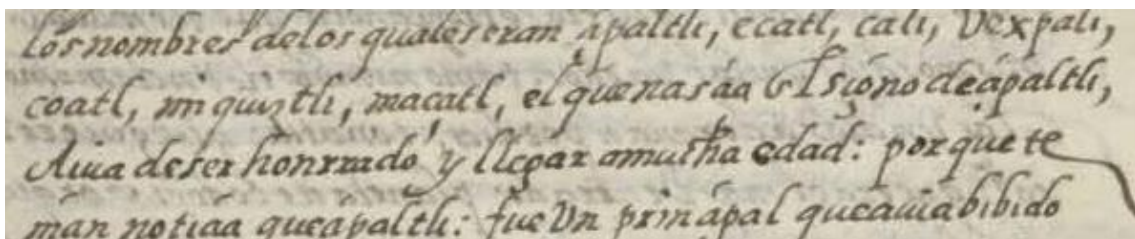 los nombres delos quales eran çipaltli, ecatl, cali, Vexpali,
coatl, miquiztli, maçatl, el que nasçia el signo de çipaltli,
Auia de ser honrrado y llegar a mucha edad: porque te
nian notiçia que çipaltli: fue Vn prinçipal que auia bibido